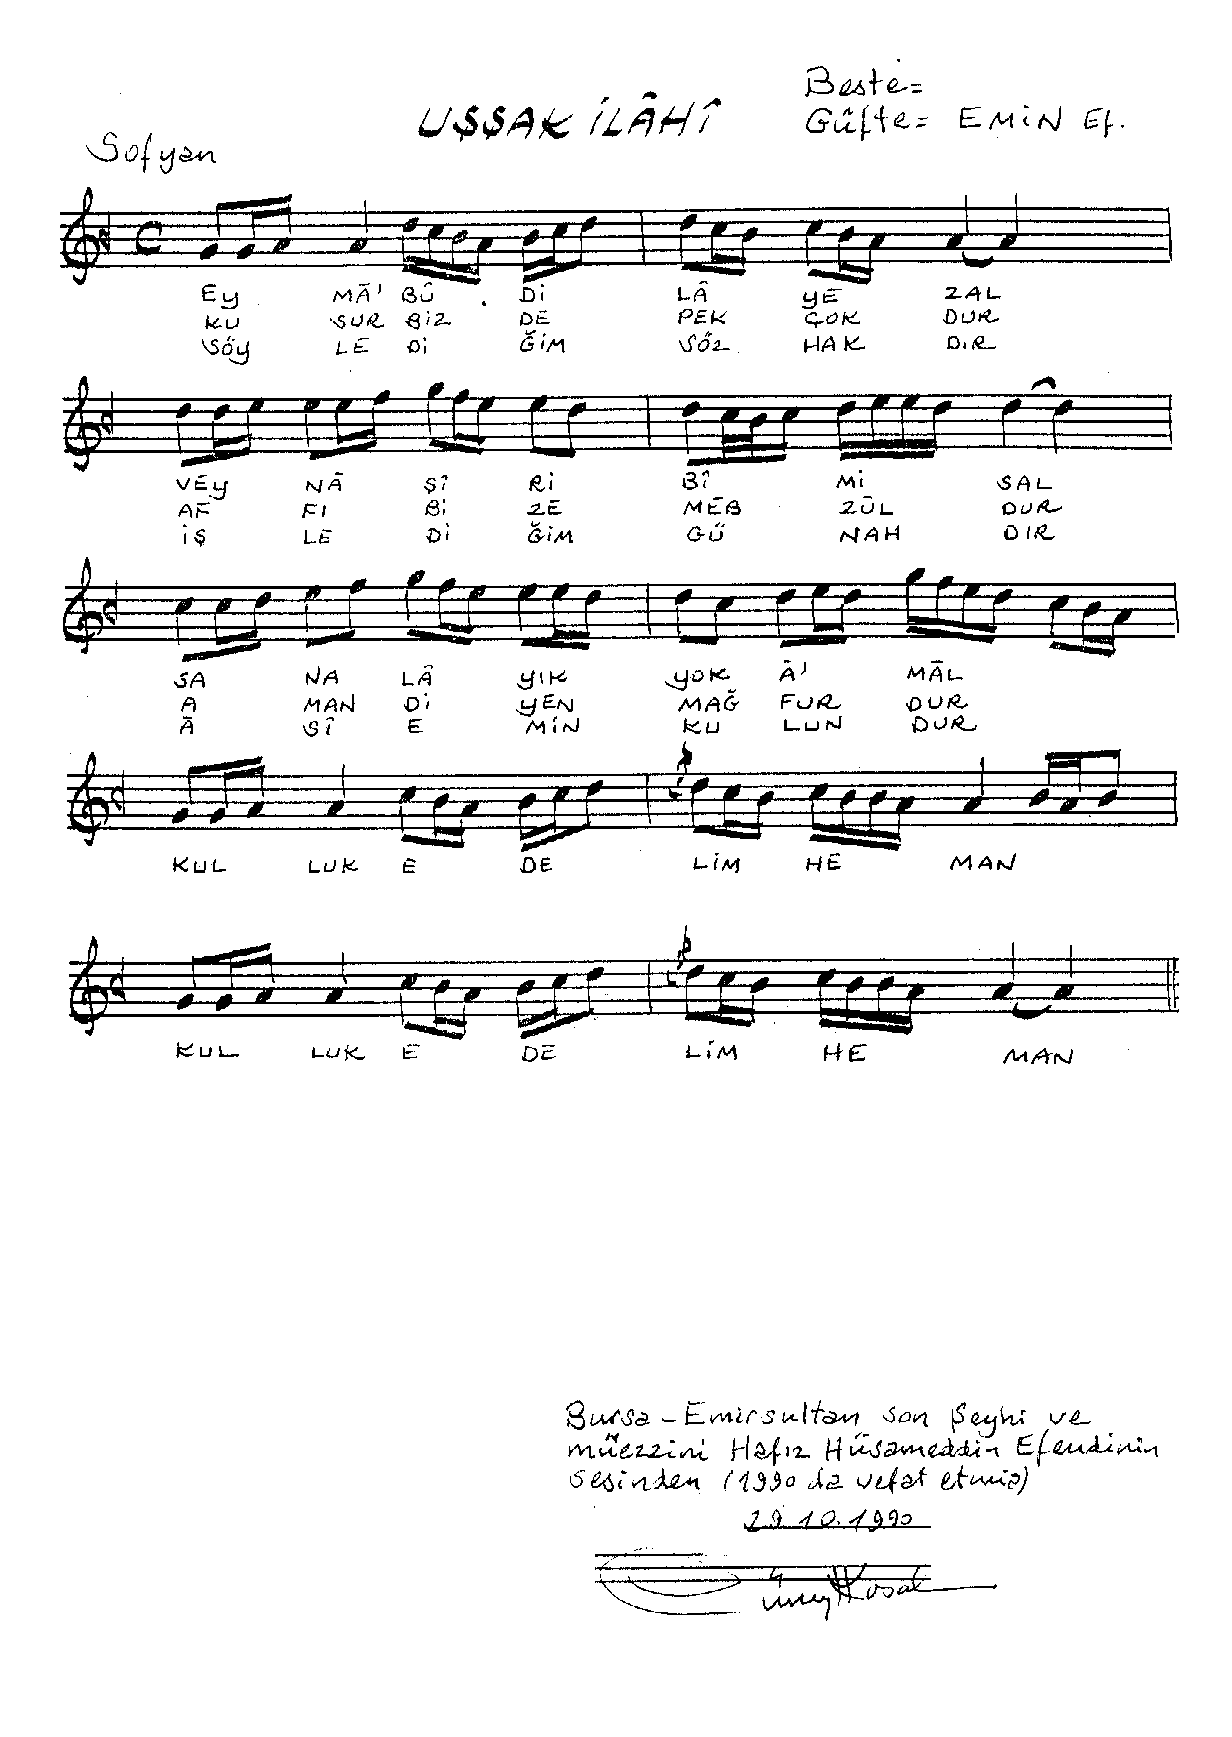 Beste=
UŞŞAK İLÂHÎ
Gûfte= EMİN Ef.
Sofyan
EY MĀ' BÛ Dİ LÂ YE ZAL
KU SUR BİZ DE PEK ÇOK DUR
SÖY LE Dİ ĞİM SÖZ HAK DIR
VEY NĀ ŞÎ Rİ BÎ Mİ SAL
AF FI Bİ ZE MEB ZÛL DUR
İŞ LE Dİ ĞİM GÜ NAH DIR
SA NA LÂ YIK YOK Ā' MĀL
A MAN Dİ YEN MAĞ FUR DUR
Ā SÎ E MİN KU LUN DUR
KUL LUK E DE LİM HE MAN
KUL LUK E DE LİM HE MAN
Bursa - Emirsultan son Şeyhi ve
müezzini Hafız Hüsameddin Efendinin
sesinden (1990 da vefat etmiş)
29.10.1990